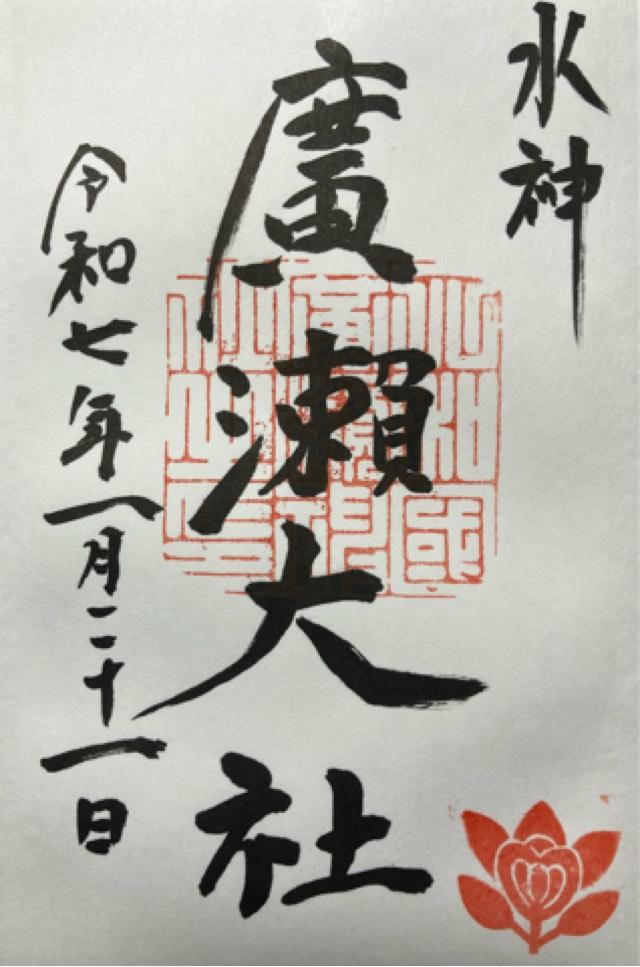 水神
廣瀬大社
令和七年一月二十一日